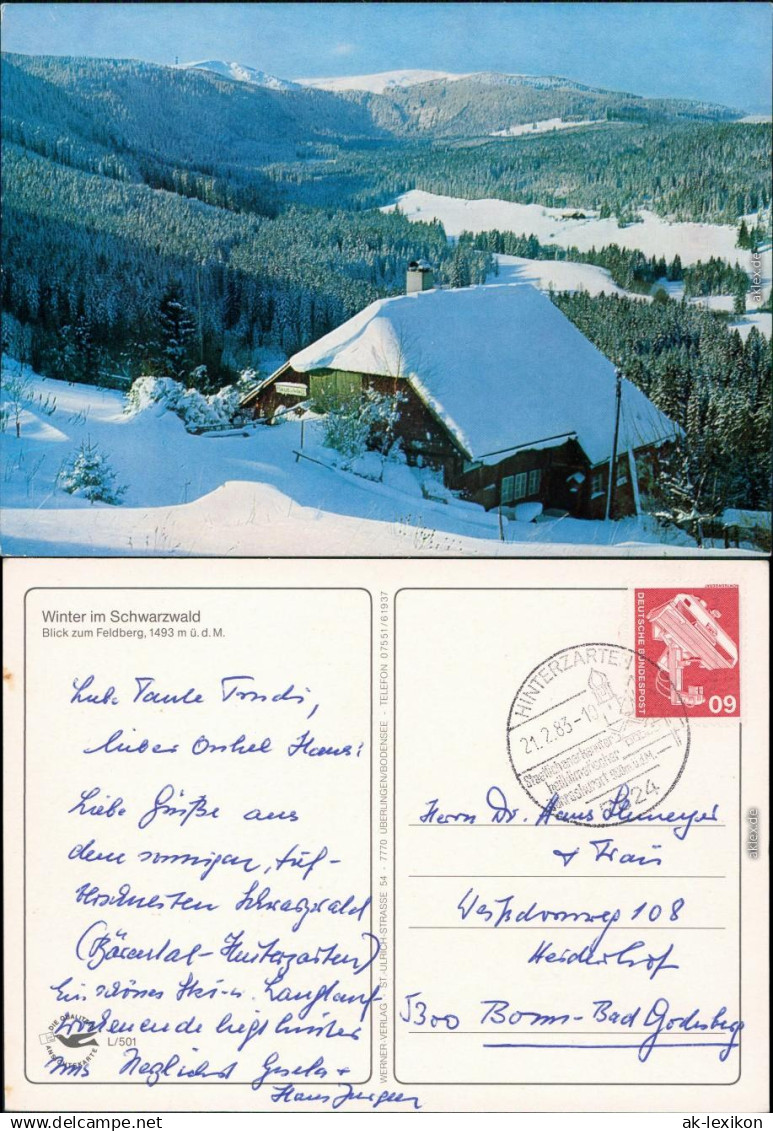 Winter im Schwarzwald
Blick zum Feldberg, 1493 m ü. d. M.
Liebe Tante Trudi,
lieber Onkel Hans!
Liebe Grüße aus
dem sonnigen, tief-
verschneiten Schwarzwald
(Bärental-Hinterzarten)
Ein schönes Ski- u. Langlauf
wochenende liegt hinter
uns Herzlichst Gisela +
Hans Jürgen
DIE QUALITÄTS
ANSICHTSKARTE
L/501
WERNER-VERLAG · ST.-ULRICH-STRASSE 54 · 7770 ÜBERLINGEN/BODENSEE · TELEFON 07551/61937
HINTERZARTEN
21.2.83-10
Staatlich anerkannter
heilklimatischer
Kurort 900m ü.d.M.
7824
DEUTSCHE BUNDESPOST
60
Herrn Dr. Hans
+ Frau
108
Heiderhof
5300 Bonn-Bad Godesberg
aklexikon.de
aklex.de
ak-lexikon.com